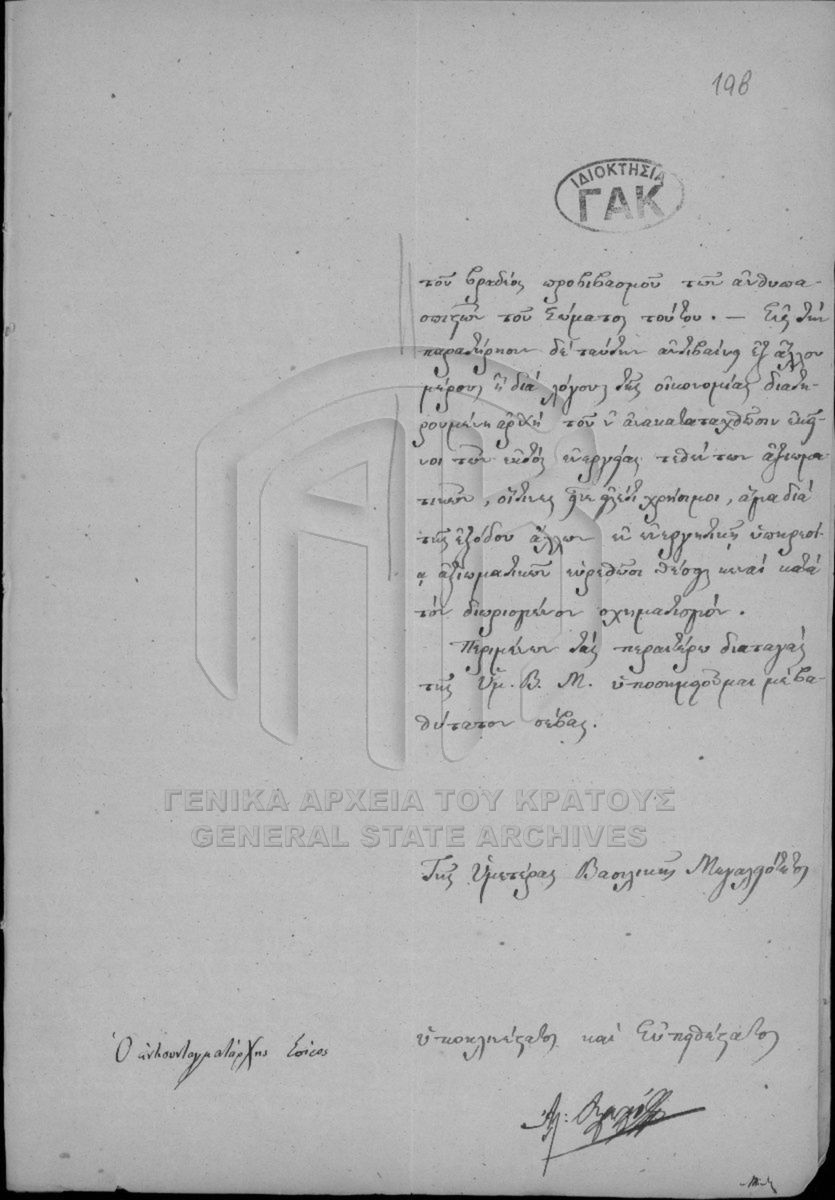 198
ΙΔΙΟΚΤΗΣΙΑ
ΓΑΚ
τοῦ βραδέος προβιβασμοῦ τῶν ἀνθυπα-
σπιστῶν τοῦ Σώματος τούτου. — Εἰς τὴν
παρατήρησιν δὲ ταύτην ἀντιβαίνει ἐξ ἄλλου
μέρους ἡ διὰ λόγους τῆς οἰκονομίας διατη-
ρουμένη ἀρχὴ τοῦ ν' ἀνακαταταχθῶσιν ἐκεῖ-
νοι τῶν ἐκτὸς ἐνεργείας τεθέντων ἀξιωμα-
τικῶν, οἵτινες εἶνε εἰσέτι χρήσιμοι, ἅμα διὰ
τῆς ἐξόδου ἄλλων ἐν ἐνεργητικῇ ὑπηρεσί-
ᾳ ἀξιωματικῶν εὑρεθῶσι θέσεις κεναὶ κατὰ
τὸν διωρισμένον σχηματισμόν.
Περιμένων τὰς περαιτέρω διαταγὰς
τῆς Ὑμ. Β. Μ. ὑποσημειοῦμαι με βα-
θύτατον σέβας.
ΓΕΝΙΚΑ ΑΡΧΕΙΑ ΤΟΥ ΚΡΑΤΟΥΣ
GENERAL STATE ARCHIVES
Τῆς Ὑμετέρας Βασιλικῆς Μεγαλειότητος
Ὁ ἀντισυνταγματάρχης
ὑποκλινέστατος καὶ Εὐπειθέστατος